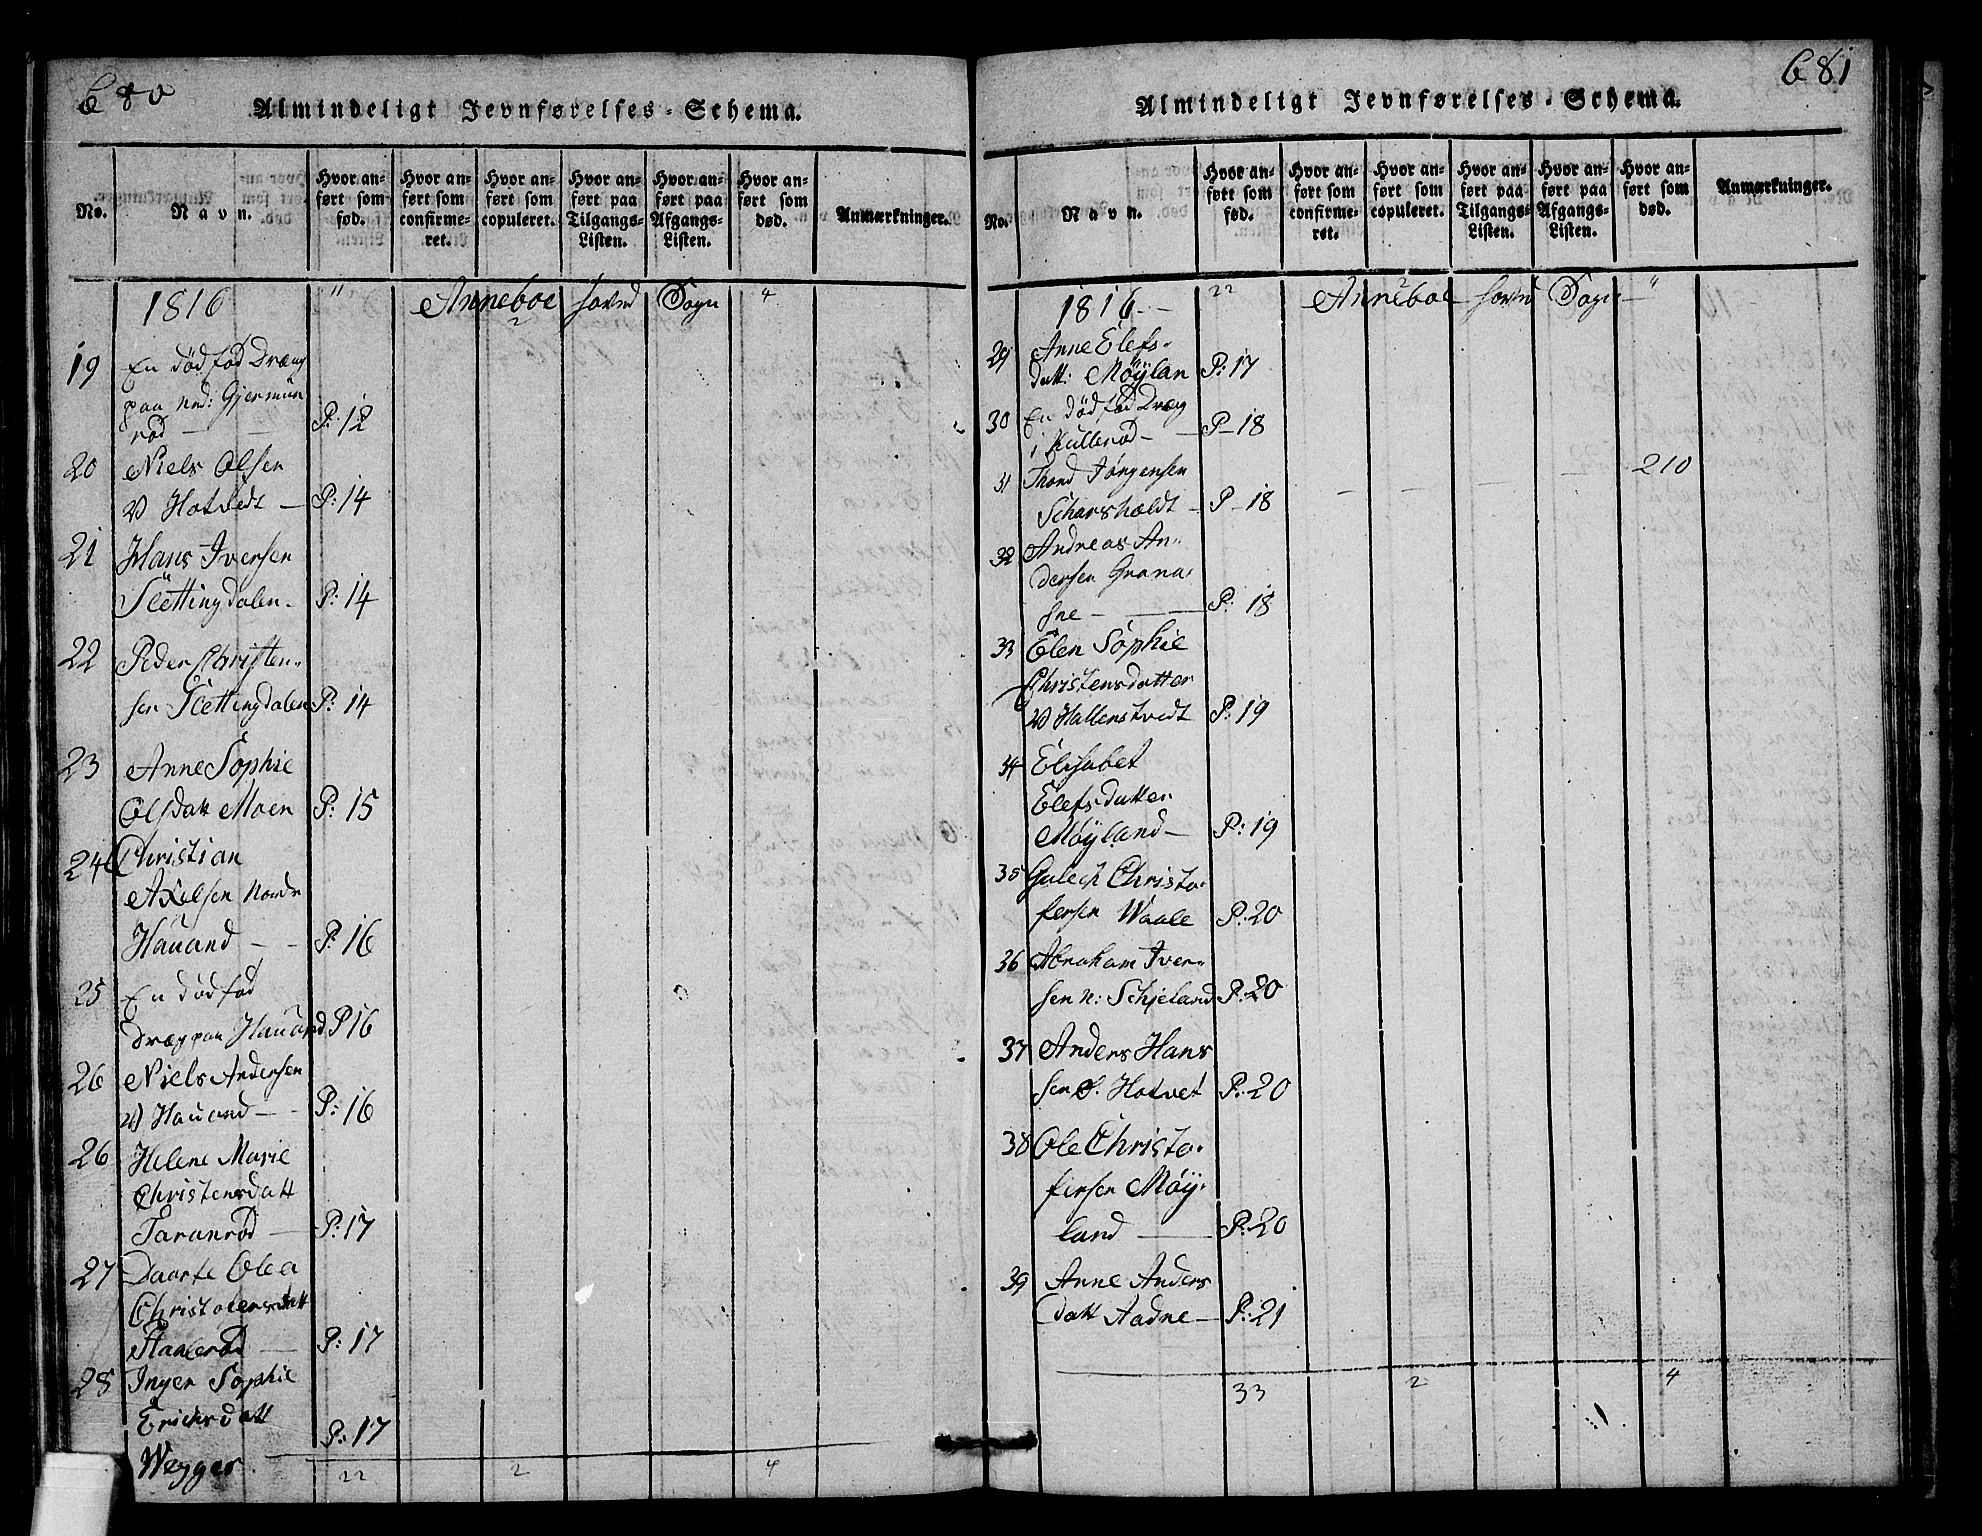 680
Almindeligt Jevnførelses-Schema.
No.
Navn.
Hvor anført som fød.
Hvor anført som confirmeret.
Hvor anført som copuleret.
Hvor anført paa Tilgangs-Listen.
Hvor anført paa Afgangs-Listen.
Hvor anført som død.
Anmærkninger.
1816 " Anneboe hoved Sogn 4
2
19 En død fød Dræng
paa ned: Gjermun
rød — P: 12
20 Niels Olsen
W Hotvedt — P: 14
21 Hans Iversen
Slettingdalen. P: 14
22 Peder Christen
sen Slettingdalen P: 14
23 Anne Sophie
Olsdatt Moen P: 15
24 Christian
Axelsen Nordr
Hauand — P: 16
25 En død fød
Dræg paa Hauand P 16
26 Niels Andersen
W Hauand — P: 16
26 Helene Marie
Christensdatt
Taranrød — P: 17
27 Daarte Olea
P: 17
28 Inger Sophie
Erichsdatt
Wegger P: 17
22 2 4
681
Almindeligt Jevnførelses-Schema.
No.
Navn.
Hvor anført som fød.
Hvor anført som confirmeret.
Hvor anført som copuleret.
Hvor anført paa Tilgangs-Listen.
Hvor anført paa Afgangs-Listen.
Hvor anført som død.
Anmærkninger.
1816 22 Anneboe hoved Sogn "
2
29 Anne Elefs
datt: Møylan P: 17
30 En død fød Dræng
i Kullerød — P — 18
31 Thord Jörgensen 210
Scharsholdt — P — 18
32 Andreas An
dersen Grana
sne — P: 18
33 Elen Sophie
Christensdatter
W Hallenstvedt P: 19
34 Elisabet
Elefsdatter
Møyland — P: 19
35 Gulech Christo
fersen Waale P: 20
36 Abraham Iver
sen n: Schjeland P: 20
37 Anders Hans
sen S. Hotvet P: 20
38 Ole Christo
fersen Møy
land — P: 20
39 Anne Anders
datt Aadne — P: 21
33 2 4